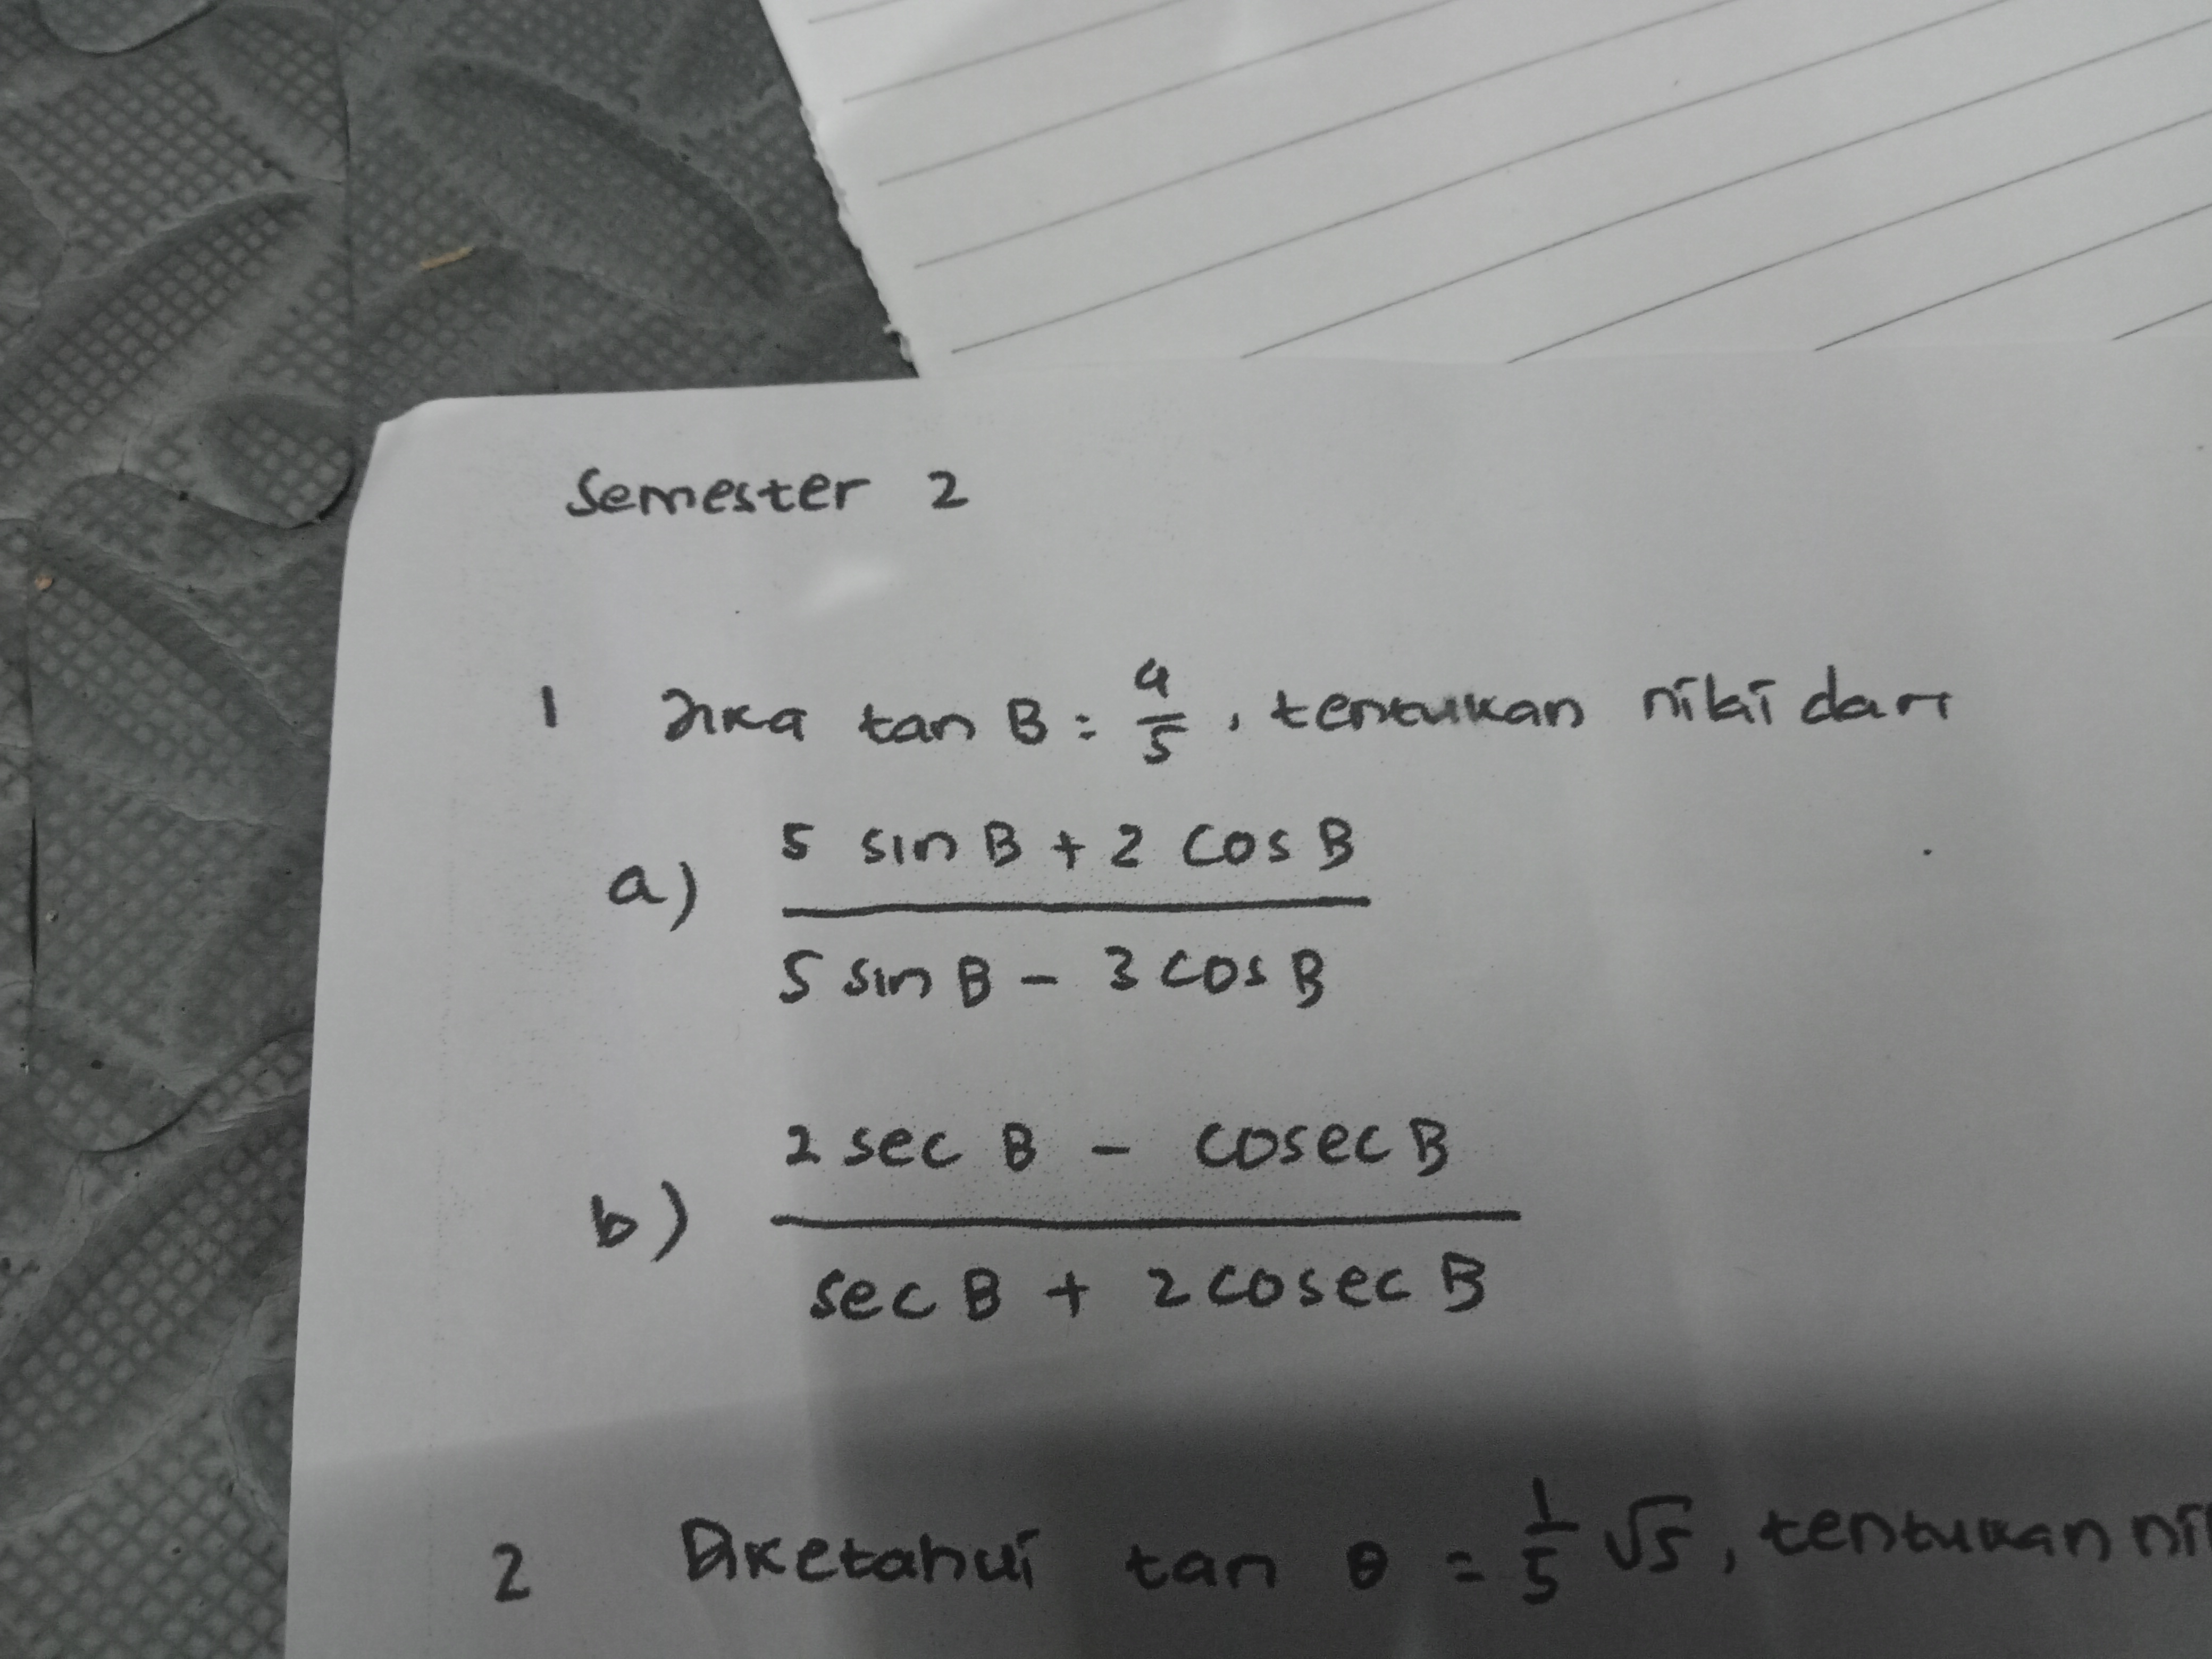 Semester 2
1 Jika tan B = 4/5, tentukan nilai dari
a) 5 sin B + 2 cos B
5 sin B - 3 cos B
b) 2 sec B - cosec B
sec B + 2 cosec B
2 Diketahui tan θ = 1/5 √5, tentukan